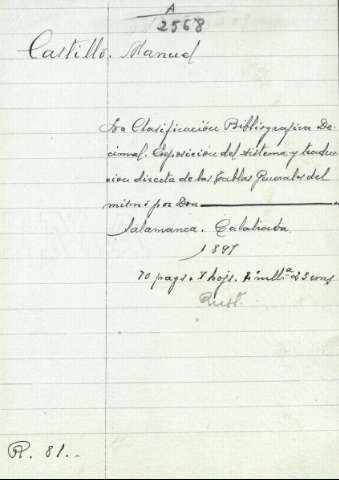 A
2568
Castillo. Manuel
La Clasificación Bibliografica De-
cimal. Exposicion del sistema y traduc-
cion directa de las tablas generales del
mismo por Don
Salamanca. Calatrava
1897
70 pags. + hojs. 23 cms
Rust.
R. 81..